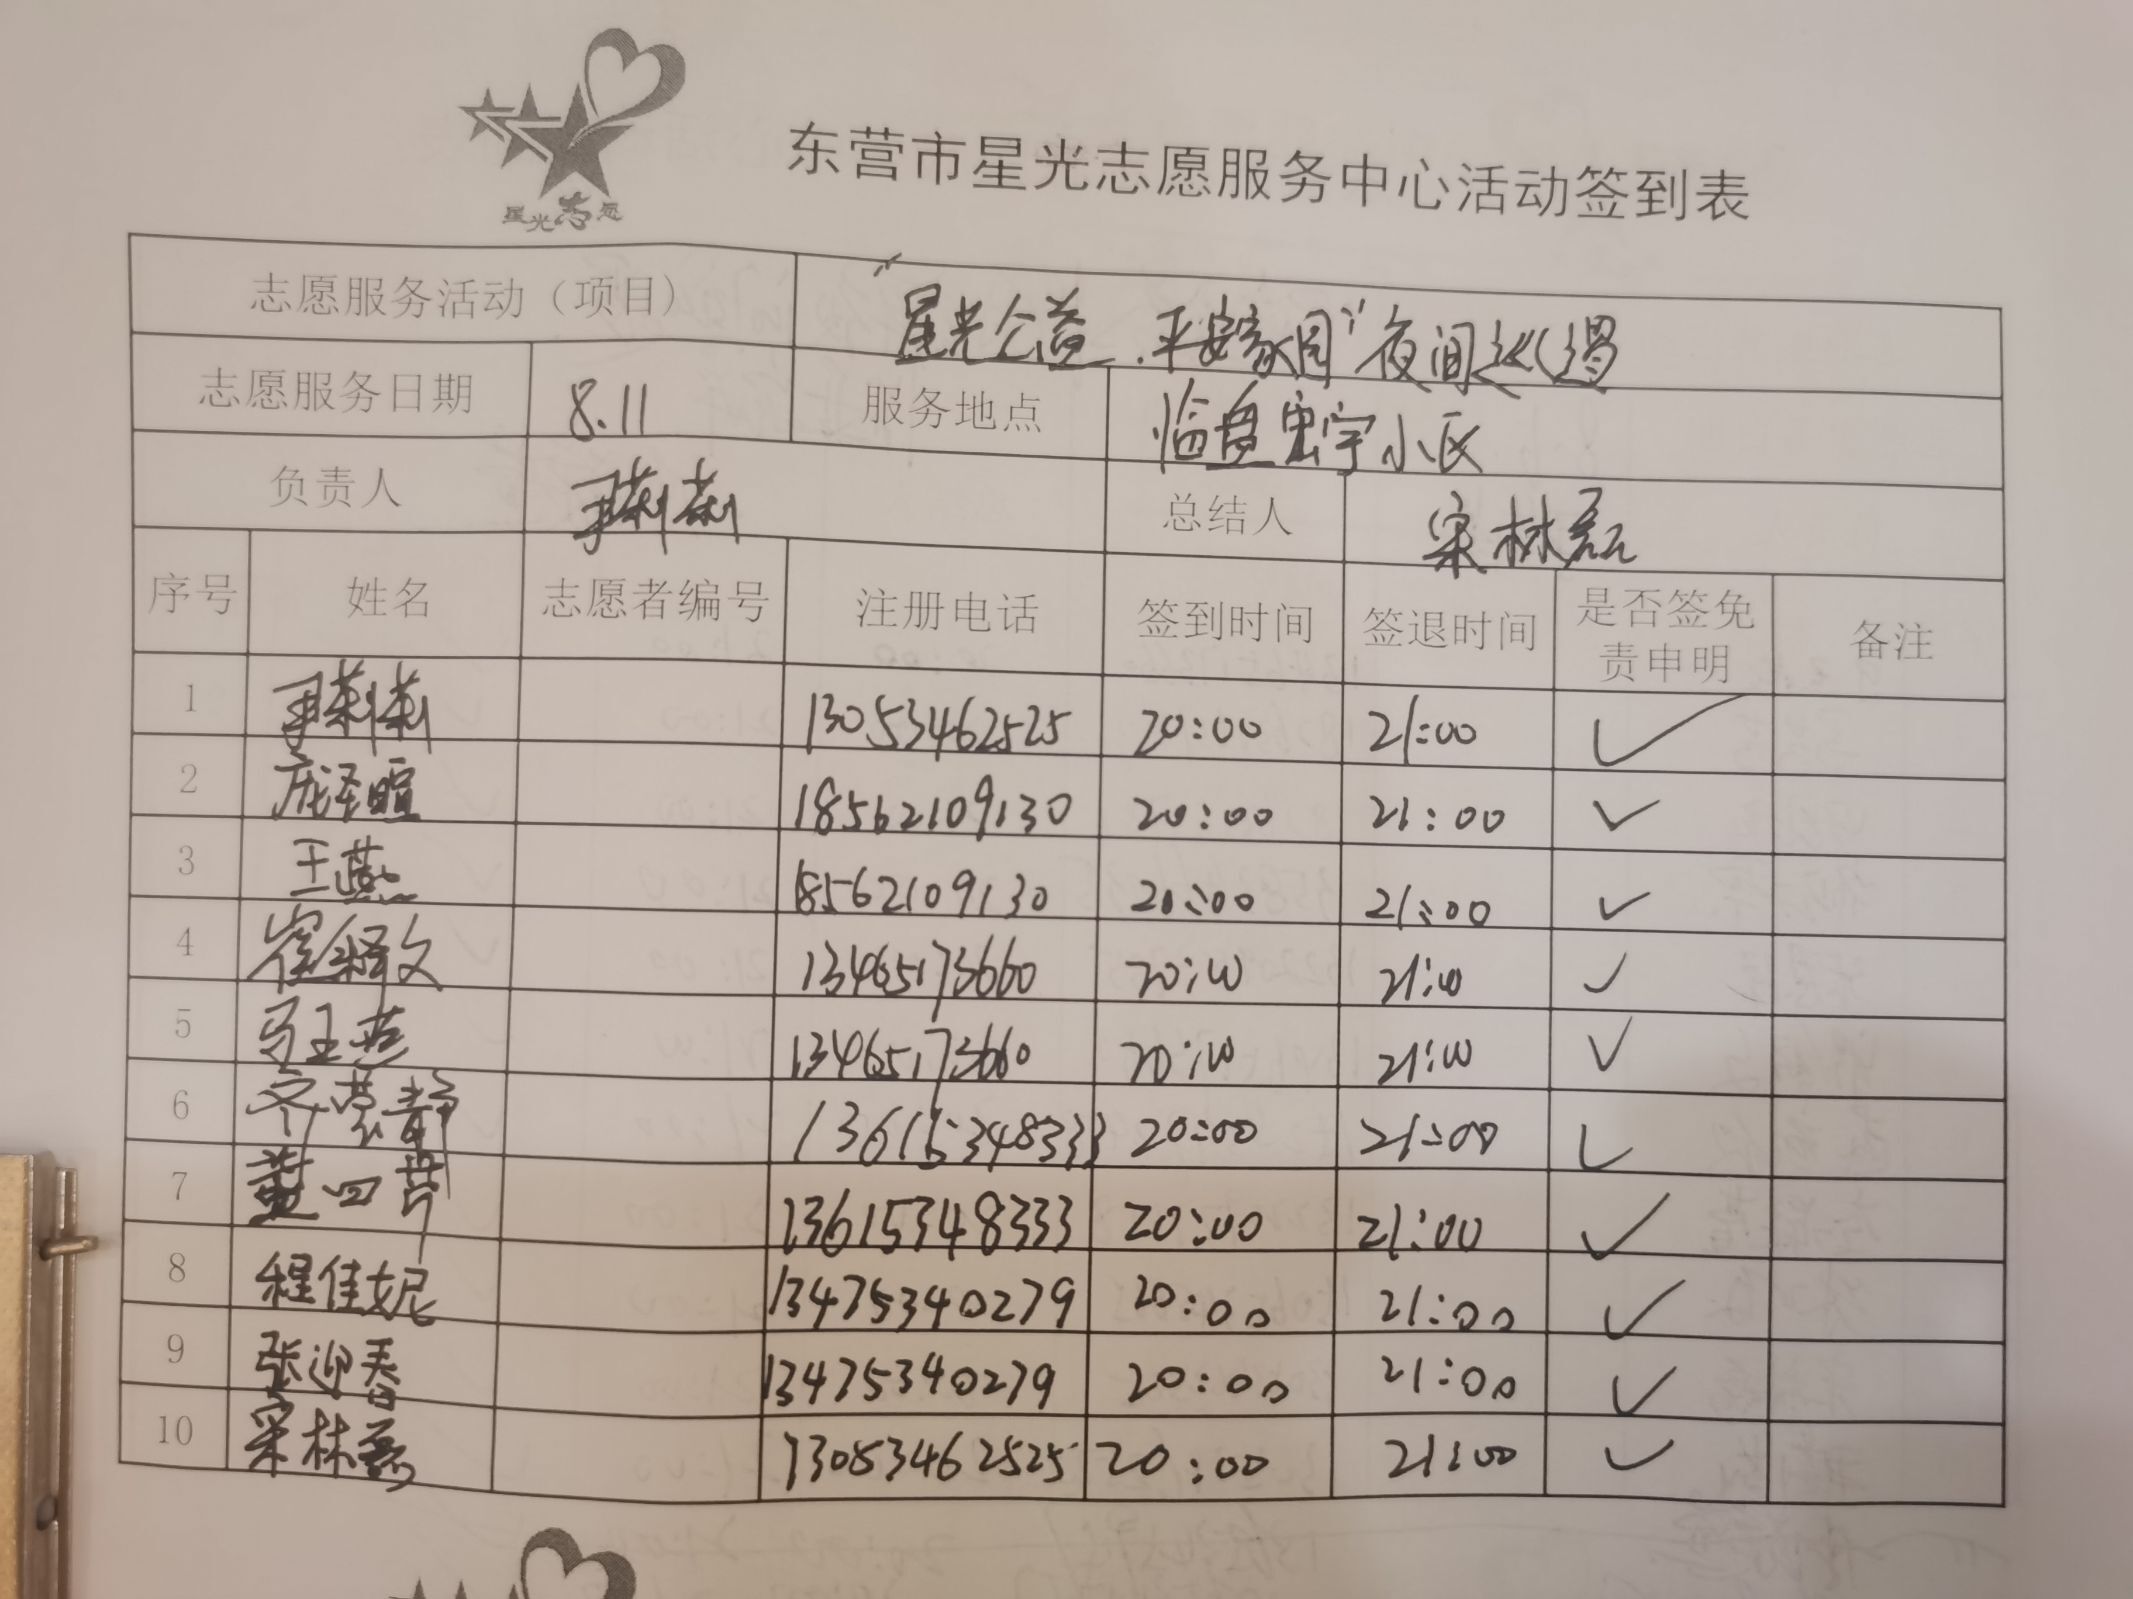 星光志愿
东营市星光志愿服务中心活动签到表
志愿服务活动（项目） “星光公益.平安家园”夜间巡逻
志愿服务日期 8.11 服务地点 临盘宏宇小区
负责人 王莉莉 总结人 宋林磊
序号 姓名 志愿者编号 注册电话 签到时间 签退时间 是否签免责申明 备注
1 王莉莉 13053462525 20:00 21:00 ✓
2 庞泽暄 18562109130 20:00 21:00 ✓
3 王燕 18562109130 20:00 21:00 ✓
4 崔释文 13465173660 20:00 21:00 ✓
5 马玉燕 13465173660 20:00 21:00 ✓
6 齐芸静 13615348333 20:00 21:00 ✓
7 董四芹 13615348333 20:00 21:00 ✓
8 程佳妮 13475340279 20:00 21:00 ✓
9 张迎春 13475340279 20:00 21:00 ✓
10 宋林磊 13053462525 20:00 21:00 ✓